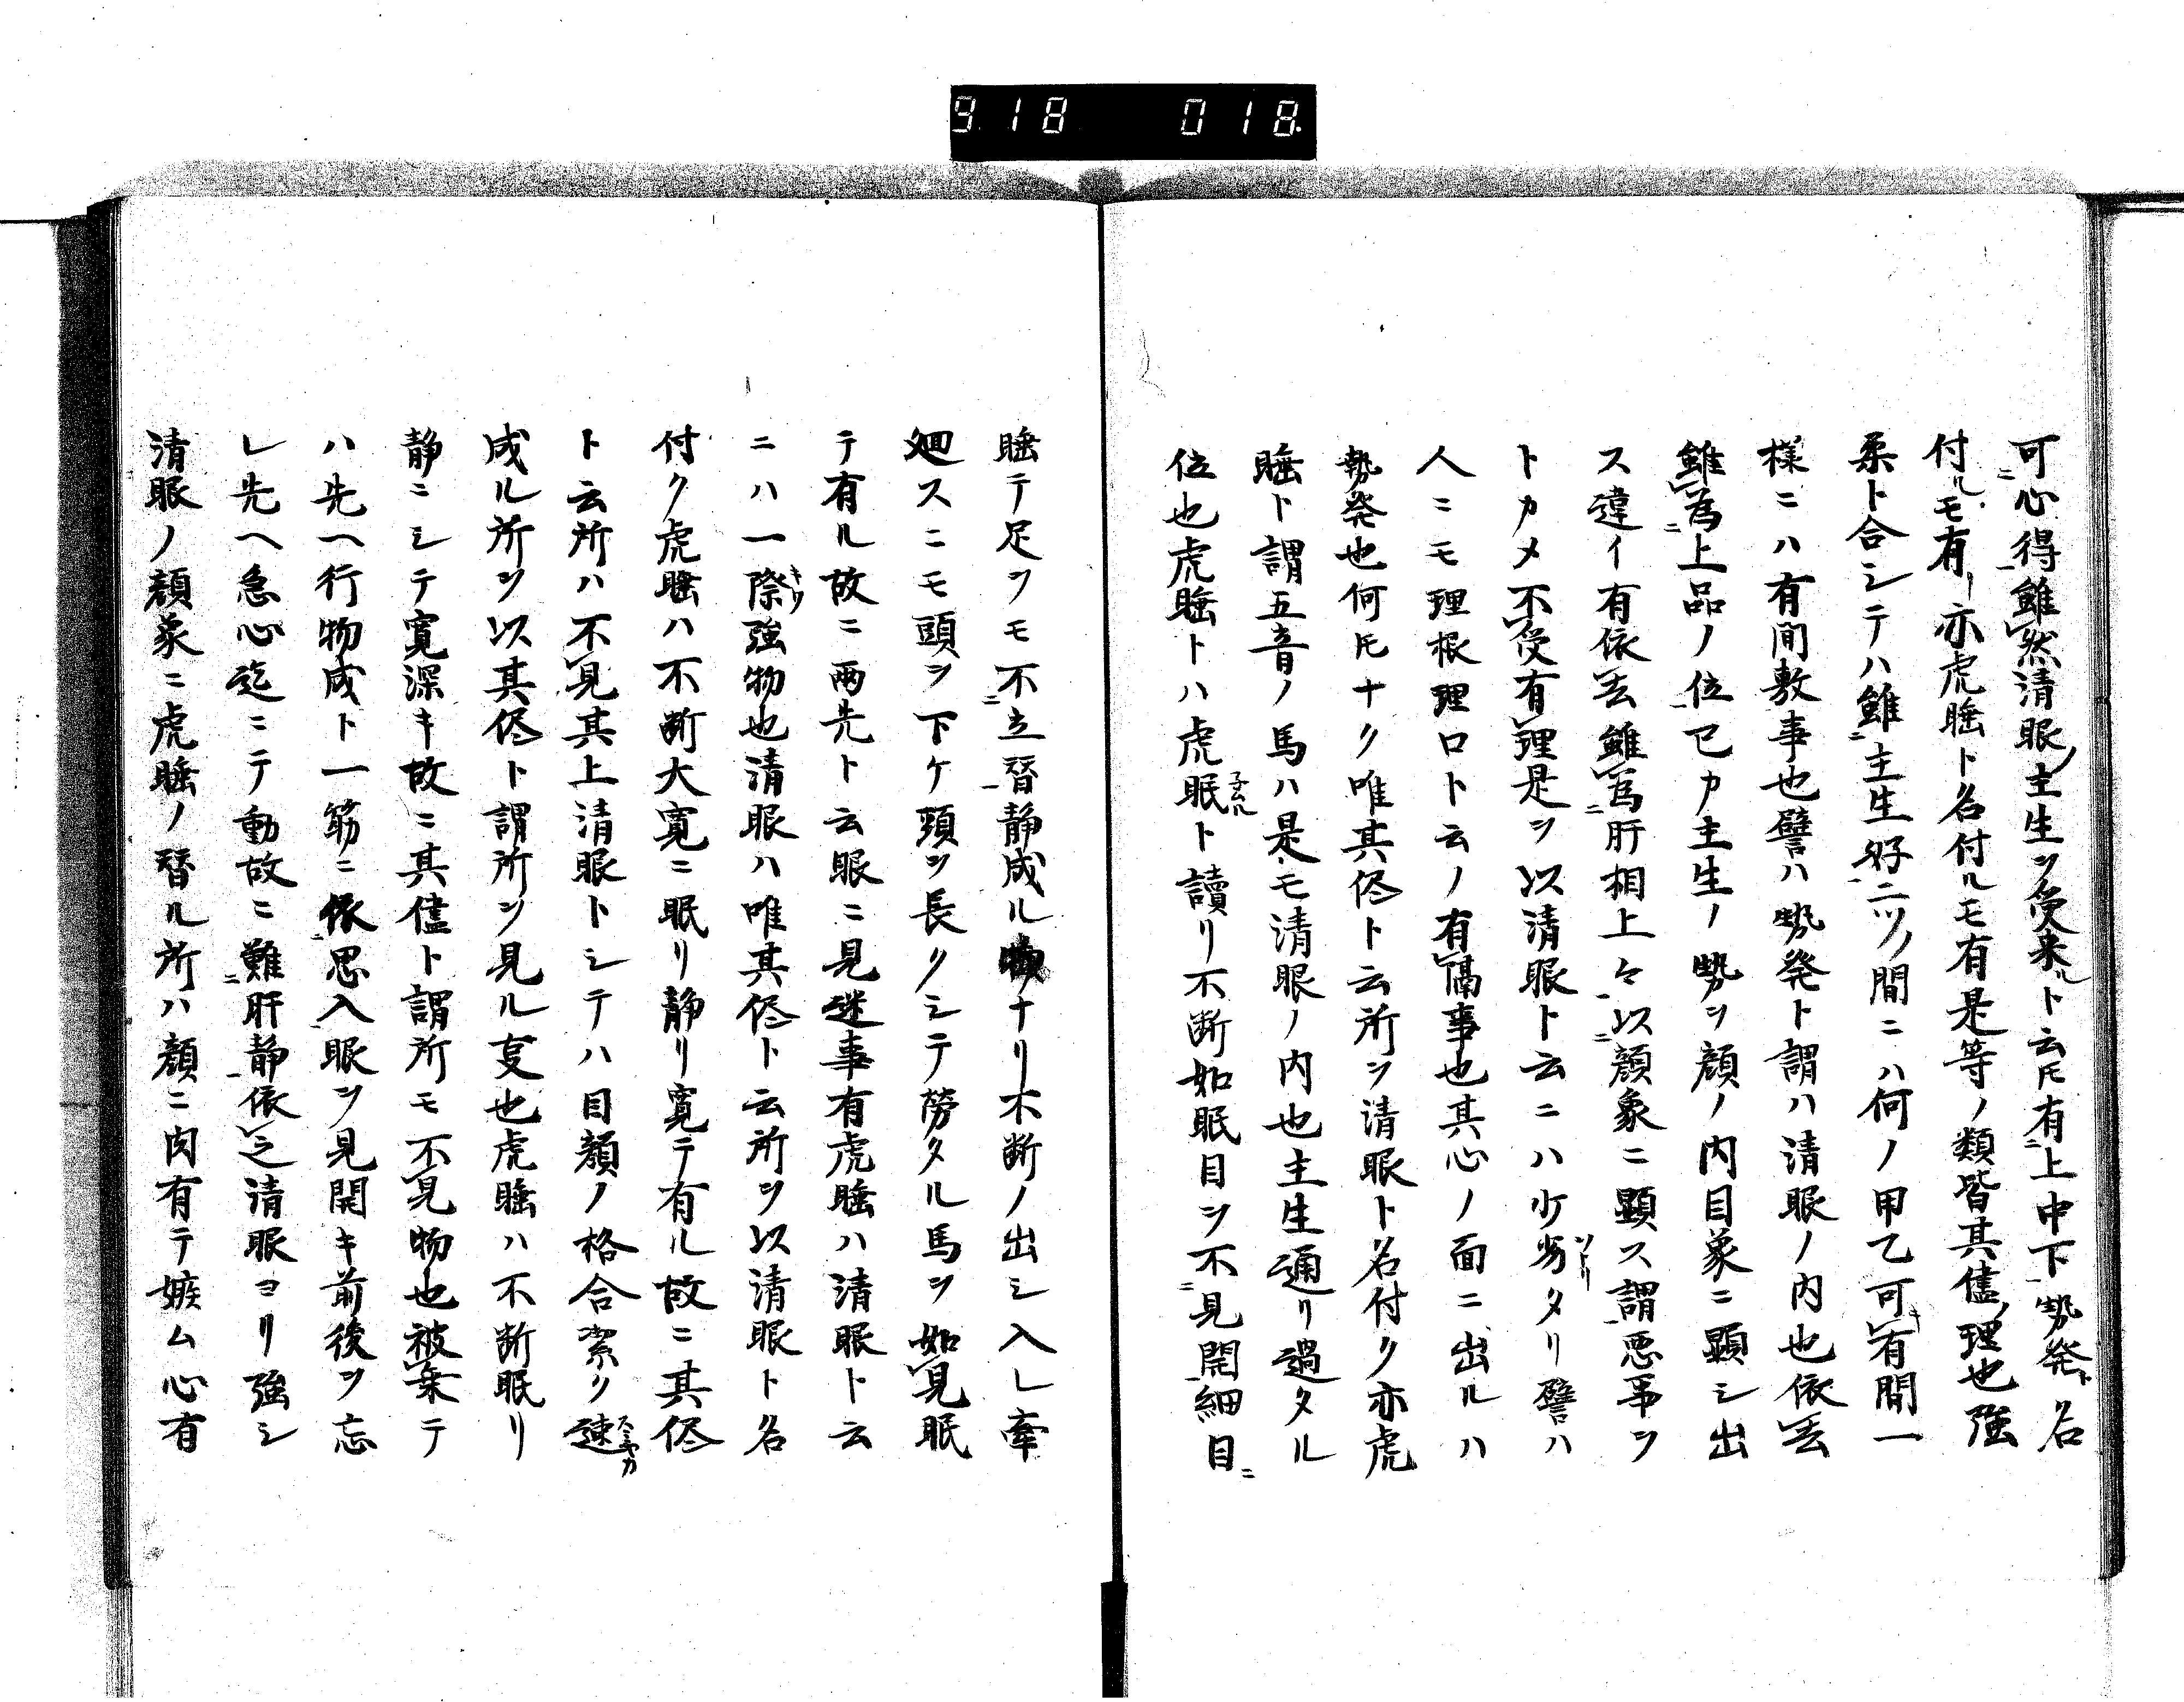 918 018
可心得雖然清眼ノ主生ヲ受来ルト云ﾄﾓ有上中下勢発ト名
付ルモ有亦虎睡ト名付ルモ有是等ノ類皆其儘ノ理也強
柔ト合シテハ雖主生好二ツノ間ニハ何ノ甲乙可有間一
様ニハ有間敷事也譬ハ勢発ト謂ハ清眼ノ内也依去
雖為上品ノ位已カ主生ノ勢ヲ顔ノ内目象ニ顕シ出
ス違イ有依去雖為肝相上々以顔象ニ顕ス謂悪事ヲ
トカメ不受有理是ヲ以清眼ト云ニハ少劣タリ譬ハ
人ニモ理根理口ト云ノ有隔事也其心ノ面ニ出ルハ
勢発也何ﾄﾓナク唯其侭ト云所ヲ清眼ト名付ク亦虎
睡ト謂五音ノ馬ハ是モ清眼ノ内也主生通リ過タル
位也虎睡トハ虎眠ト讀リ不断如眠目ヲ不見開細目ニ
睡テ足ヲモ不立替静成ル物ナリ不断ノ出シ入レ牽
廻スニモ頭ヲ下ケ頸ヲ長クシテ労タル馬ヲ如見眠
テ有ル故ニ両先ト云眼ニ見迷事有虎睡ハ清眼ト云
ニハ一際強物也清眼ハ唯其侭ト云所ヲ以清眼ト名
付ク虎睡ハ不断大寛ニ眠リ静リ寛テ有ル故ニ其侭
ト云所ハ不見其上清眼トシテハ目顔ノ格合潔ク速
成ル所ヲ以其侭ト謂所ヲ見ル支也虎睡ハ不断眠リ
静ニシテ寛深キ故ニ其儘ト謂所モ不見物也被乗テ
ハ先ヘ行物成ト一筋ニ依思入眼ヲ見開キ前後ヲ忘
レ先ヘ急心迄ニテ動故ニ難肝静依之清眼ヨリ強シ
清眼ノ顔象ニ虎睡ノ替ル所ハ顔ニ肉有テ嫉ム心有